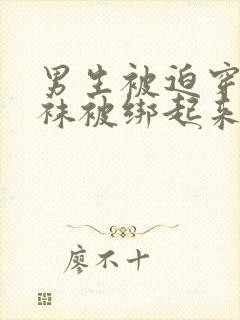 男生被迫穿
袜被绑起来
廖不十